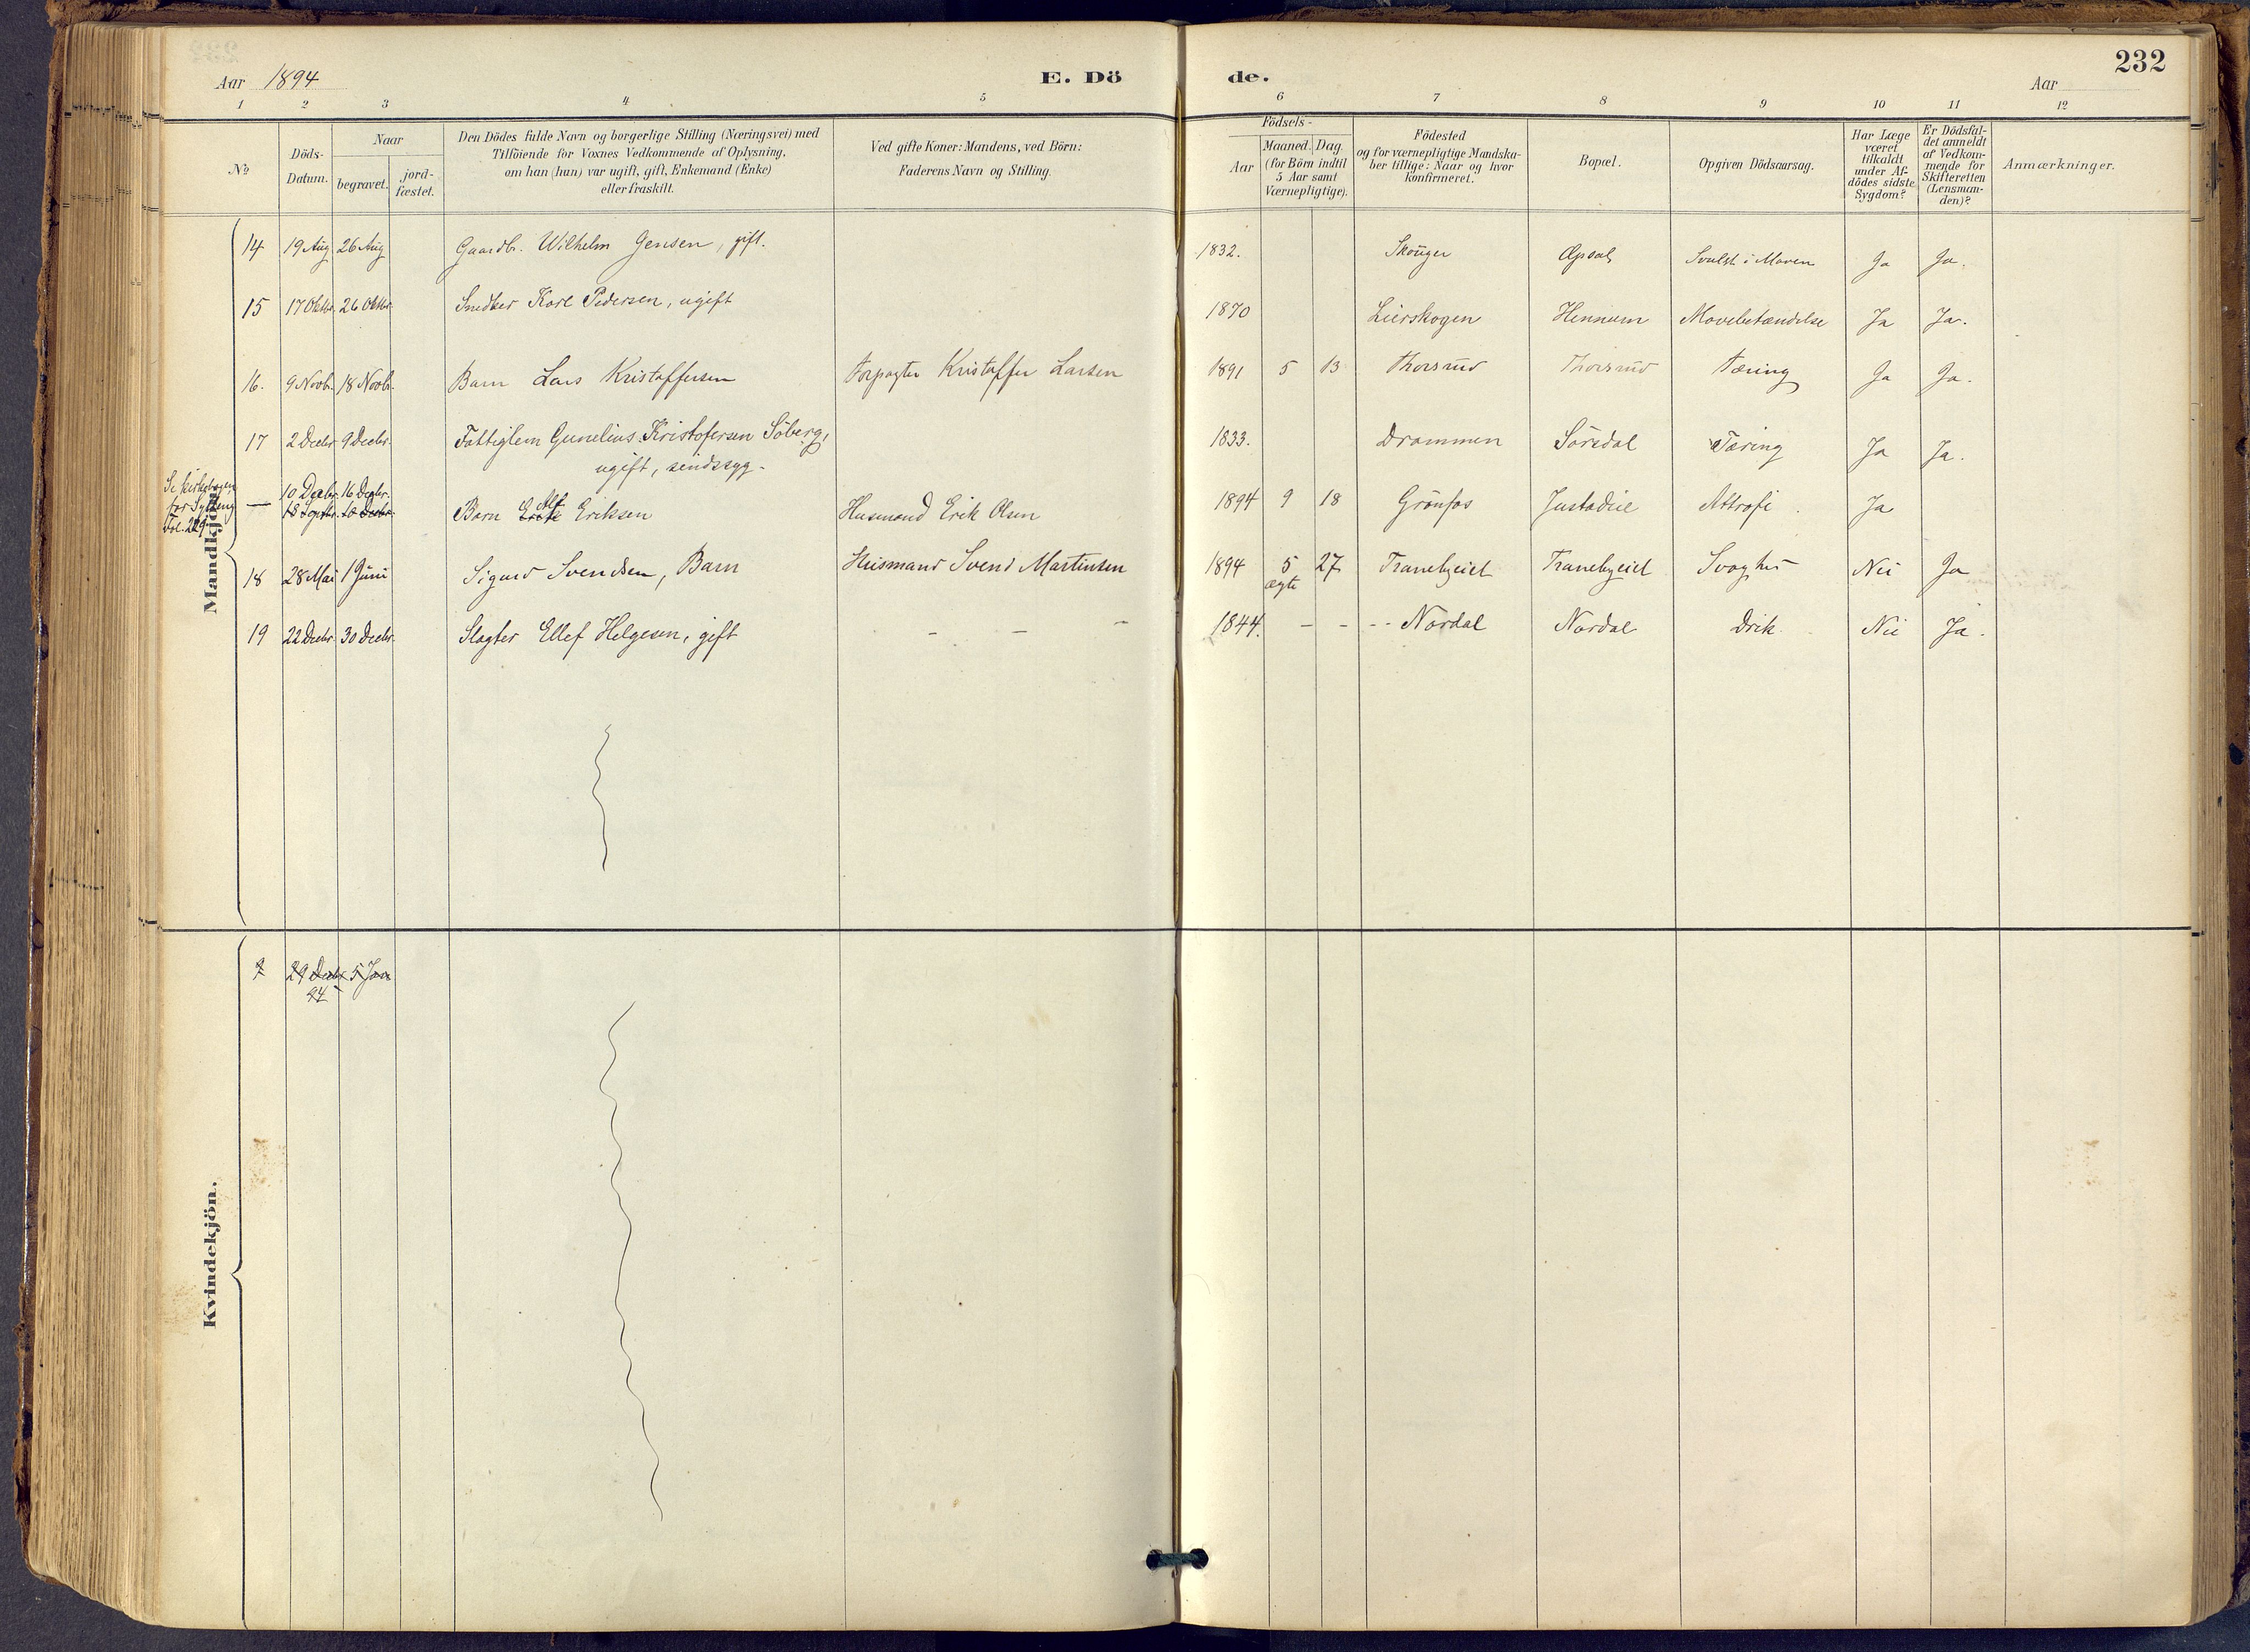 232
Aar 1894 E. Dö de. Aar
1 2 3 4 5 6 7 8 9 10 11 12
No
Döds-
Datum.
Naar
begravet.
jord-
fæstet.
Den Dödes fulde Navn og borgerlige Stilling (Næringsvei) med
Tilföiende for Voxnes Vedkommende af Oplysning,
om han (hun) var ugift, gift, Enkemand (Enke)
eller fraskilt.
Ved gifte Koner: Mandens, ved Börn:
Faderens Navn og Stilling.
Födsels-
Aar
Maaned. Dag.
(for Börn indtil
5 Aar samt
Værnepligtige).
Födested
og for værnepligtige Mandska-
ber tillige: Naar og hvor
konfirmeret.
Bopæl.
Opgiven Dödsaarsag.
Har Læge
været
tilkaldt
under Af-
dödes sidste
Sygdom?
Er Dödsfal-
det anmeldt
af Vedkom-
mende for
Skifteretten
(Lensman-
den)?
Anmærkninger.
Mandkjön.
14 19 Aug 26 Aug Gaardbr. Wilhelm Jensen, gift. 1832. Skouger Øpsal Svulst i Maven Ja Ja.
15 17 Oktbr. 26 Oktbr. Snedker Karl Pedersen, ugift 1870 Lierskogen Hennum Mavebetændelse Ja Ja.
16. 9 Novb. 18 Novb. Barn Lars Kristoffersen Forpagter Kristoffer Larsen 1891 5 13 Thorsrud Thorsrud Tæring Ja Ja.
17 2 Decbr 9 Decbr. Fattiglem Gunelius Kristofersen Söberg, 1833. Drammen Sörsdal Tæring Ja Ja.
ugift, sindssyg.
Se kirkebogen
for Sylling
Fol. 229
10 Decbr. 16 Decbr.
— 18 Septbr. Barn Erik Alf Eriksen Husmand Erik Olsen 1894 9 18 Grönfos Justadeie Attrofi. Ja
18 28 Mai 1 Juni Sigurd Svendsen, Barn Husmand Svend Martinsen 1894 5 27 Tranebyeiet Tranebyeiet Svaghed Nei Ja
ægte
19 22 Decbr. 30 Decbr. Slagter Ellef Helgesen, gift - - - 1844. - - -- Nordal Nordal Drik Nei Ja.
Kvindekjön.
29 Decbr 5 Jan
94